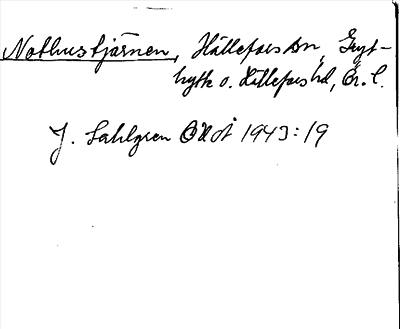 Nothustjärnen, Hällefors sn, Gryt-
hytte o. Hällefors hd, Ör. l.
J. Sahlgren 1943:19